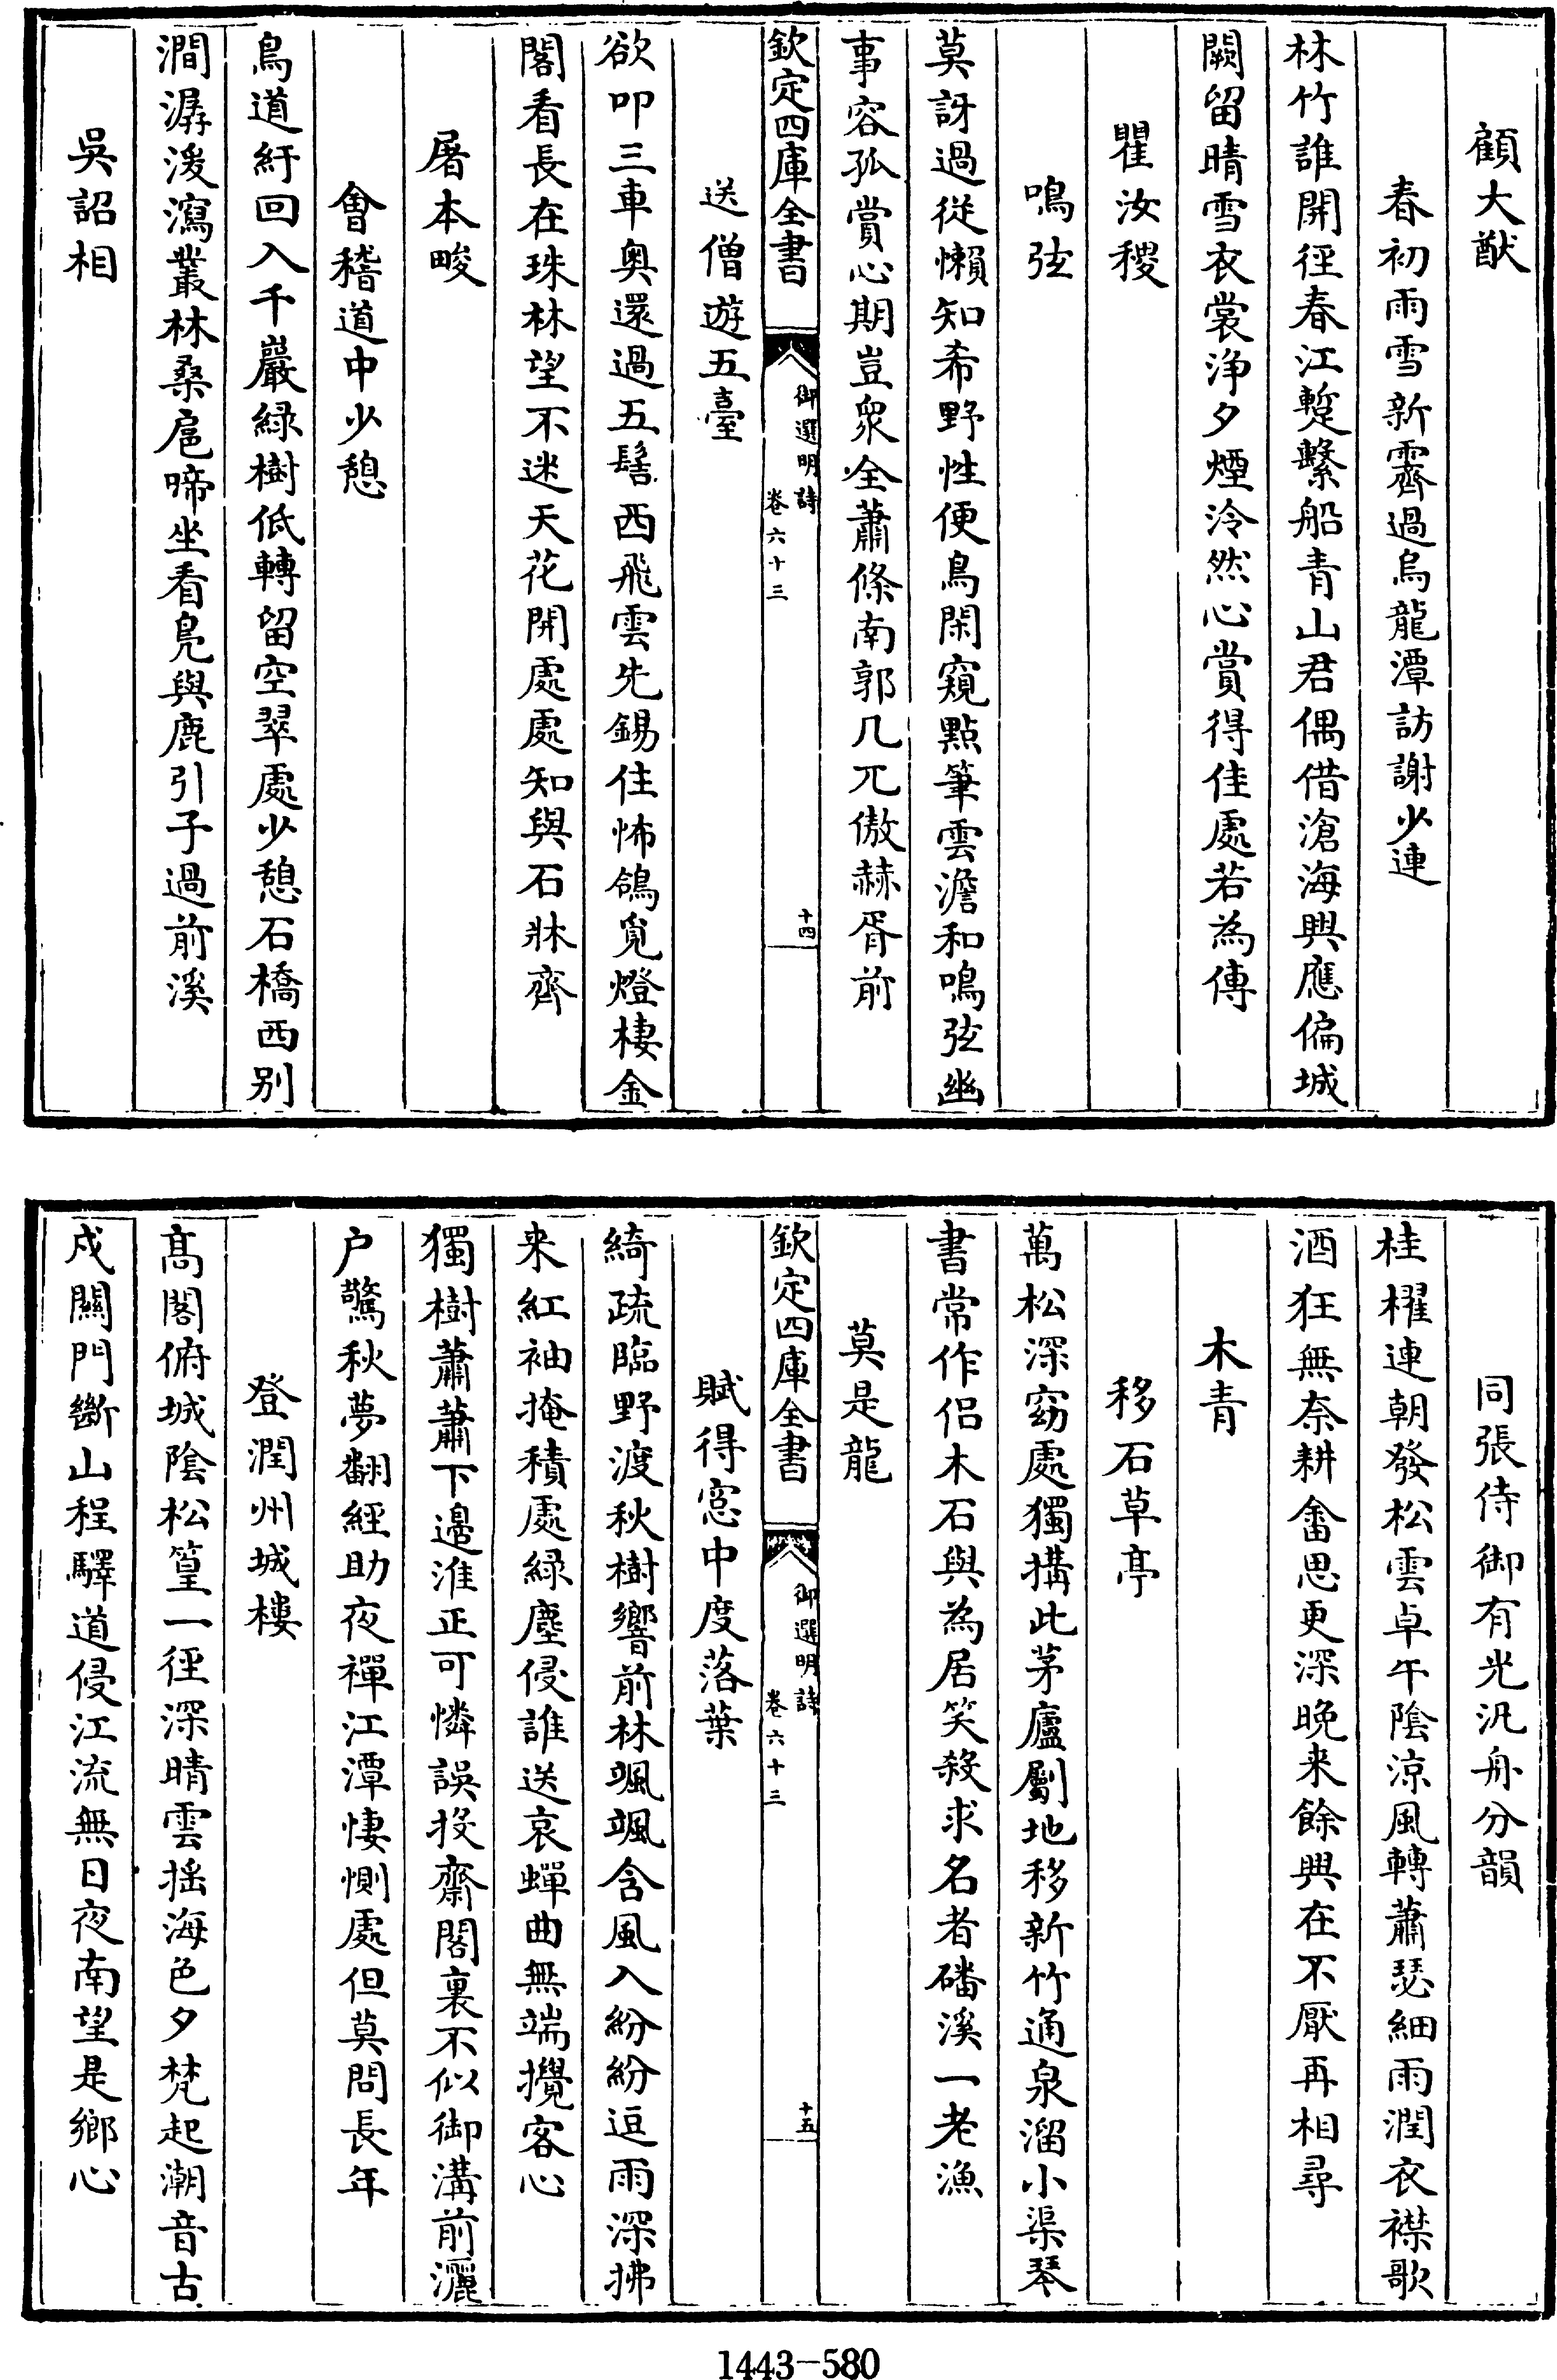 顧大猷
春初雨雪新霽過烏龍潭訪謝少連
林竹誰開徑春江蹔繫船青山君偶借滄海興應偏城
闕留晴雪衣裳浄夕煙泠然心賞得佳處若為傳
瞿汝稷
鳴弦
莫訝過從懶知希野性便鳥閑窺點筆雲澹和鳴弦幽
事容孤賞心期豈衆全蕭條南郭几兀傲赫胥前
欽定四庫全書
御選明詩
卷六十三
十四
送僧遊五臺
欲叩三車奥還過五髻西飛雲先錫住怖鴿覓燈棲金
閣看長在珠林望不迷天花開處處知與石牀齊
屠本畯
會稽道中少憩
鳥道紆回入千巖緑樹低轉留空翠處少憩石橋西别
澗潺湲瀉叢林桑扈啼坐看鳬與鹿引子過前溪
吳詔相
同張侍御有光汎舟分韻
桂櫂連朝發松雲卓午陰凉風轉蕭瑟細雨潤衣襟歌
酒狂無奈耕畬思更深晚来餘興在不厭再相尋
木青
移石草亭
萬松深窈處獨搆此茅廬斸地移新竹通泉溜小渠琴
書常作侣木石與為居笑殺求名者磻溪一老漁
莫是龍
欽定四庫全書
御選明詩
卷六十三
十五
賦得窓中度落葉
綺疏臨野渡秋樹響前林颯颯含風入紛紛逗雨深拂
来紅袖掩積處緑塵侵誰送哀蟬曲無端攪客心
獨樹蕭蕭下邉淮正可憐誤投齋閣裏不似御溝前灑
户驚秋夢翻經助夜禪江潭悽惻處但莫問長年
登潤州城樓
髙閣俯城陰松篁一徑深晴雲揺海色夕梵起潮音古
戍關門斷山程驛道侵江流無日夜南望是鄉心
1443-580